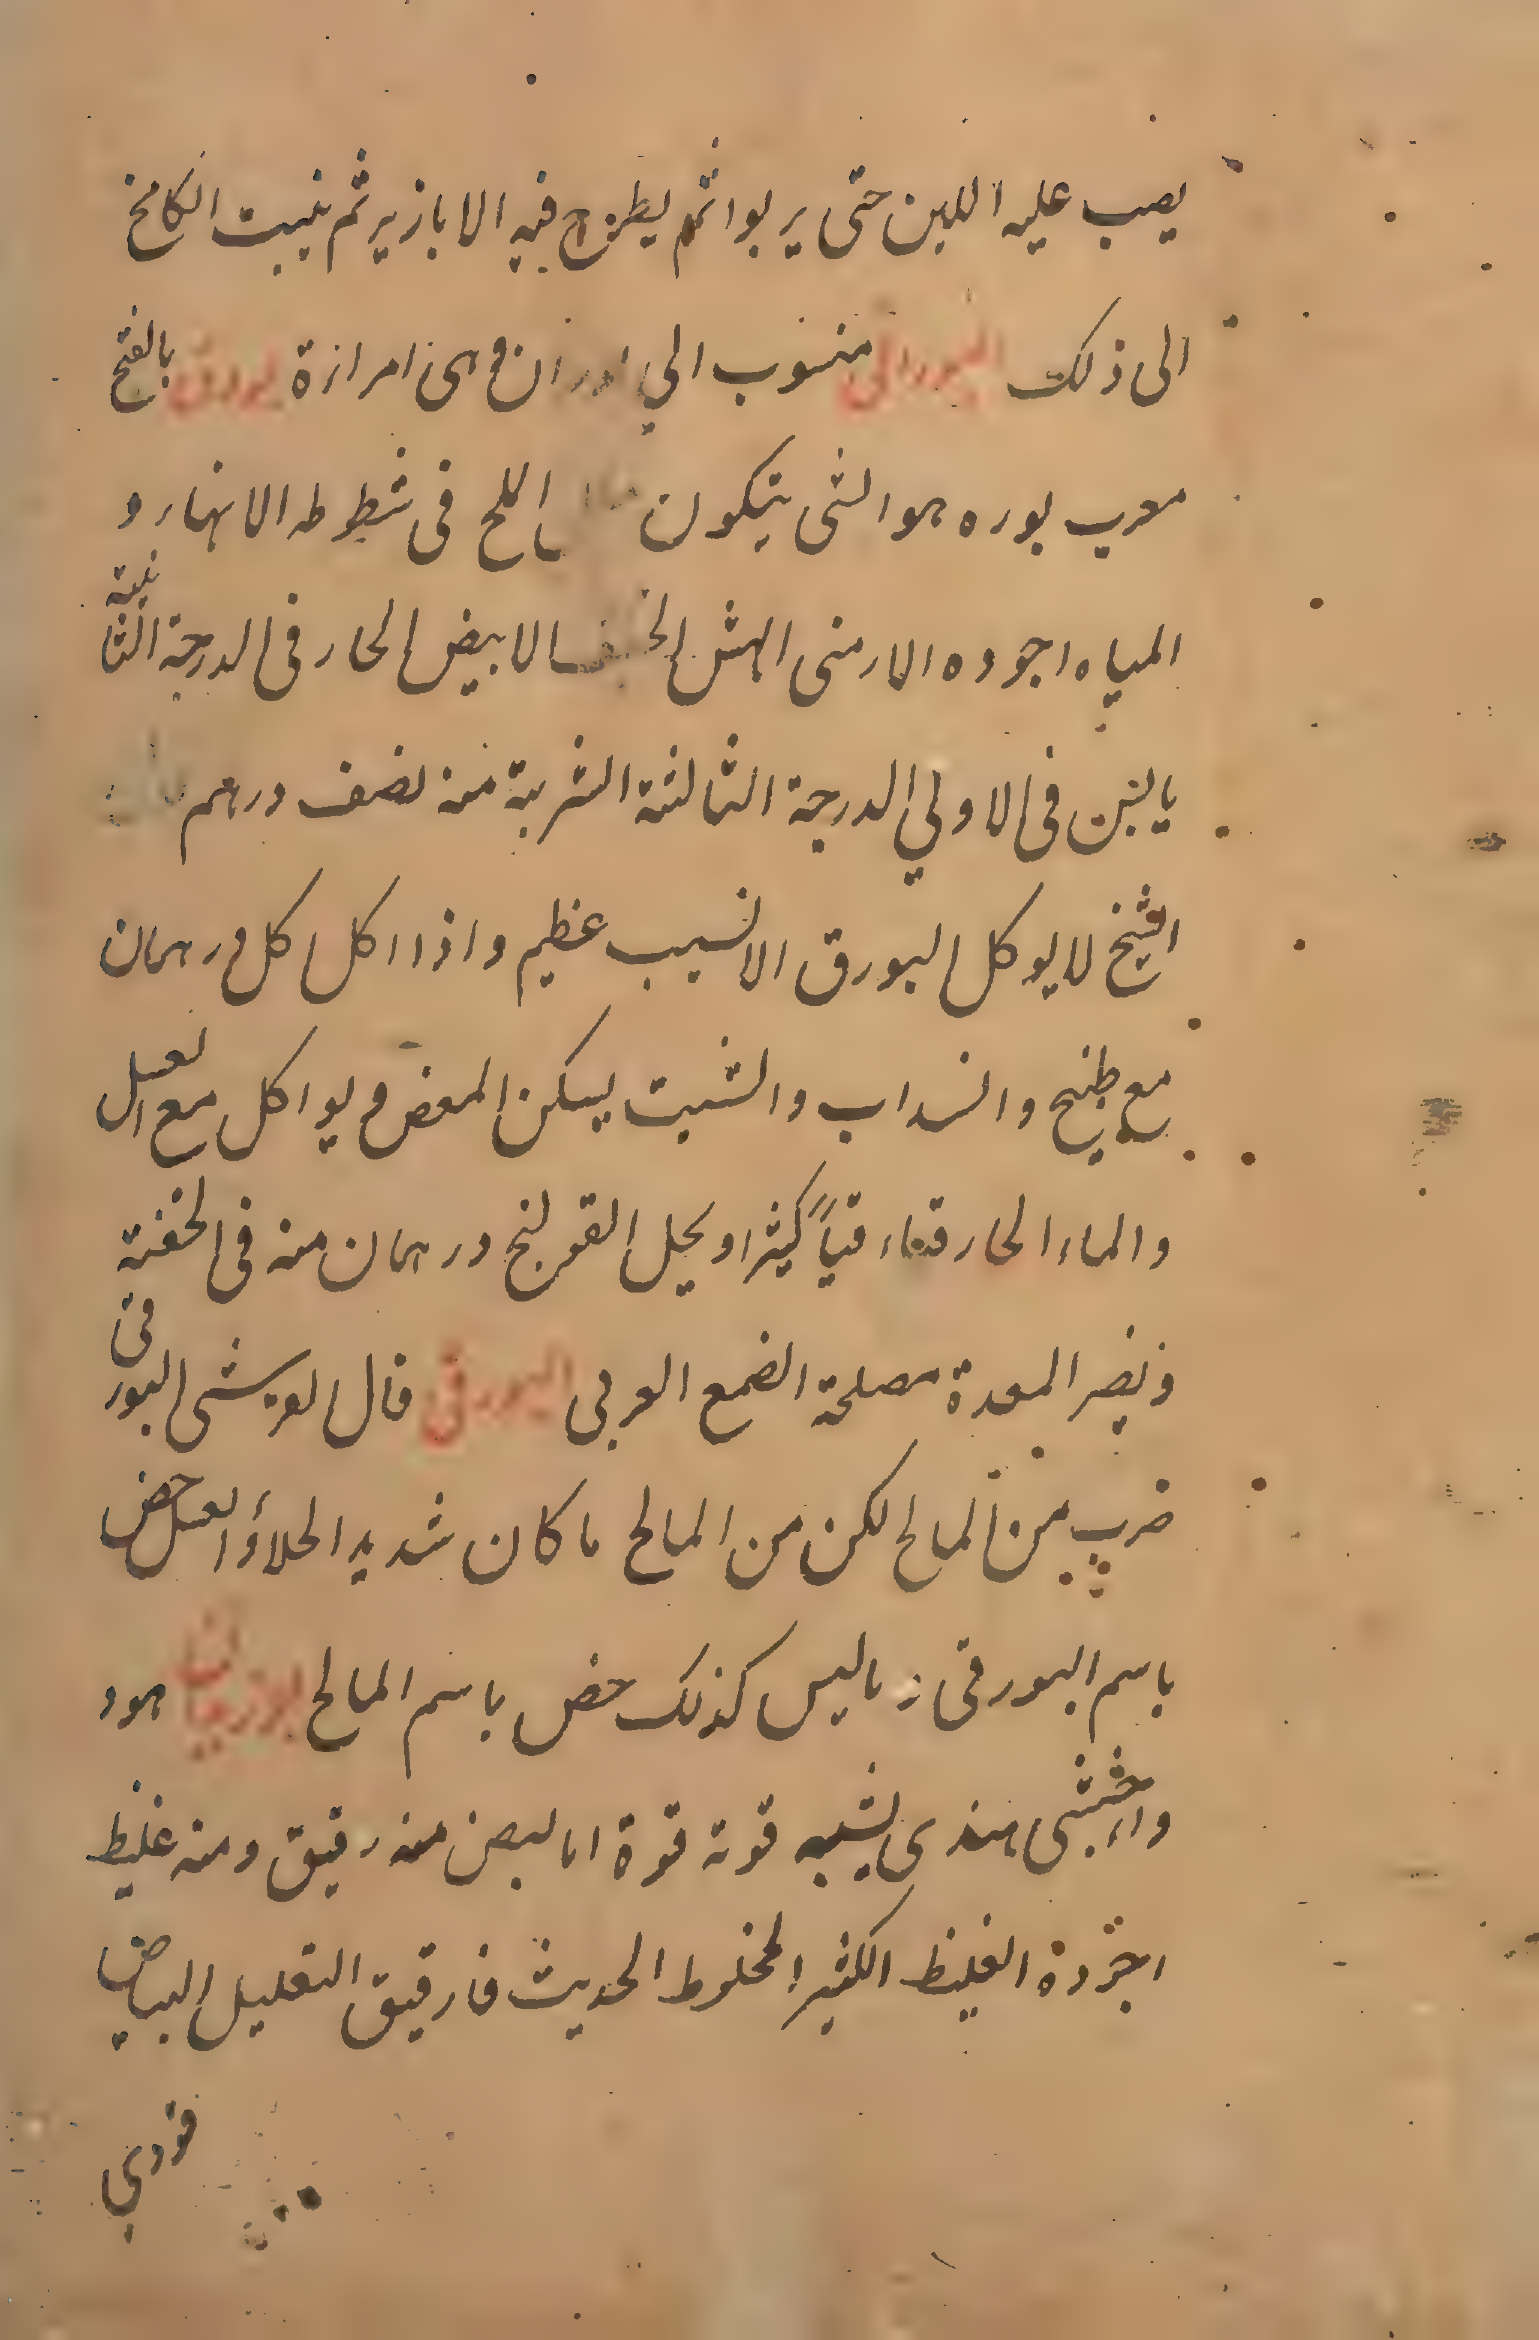 يصب عليه اللبن حتى يربوا ثم يطرح فيه الابازير ثم ينبت الكامخ
الى ذلك البورانى منسوب الي بوران وهى امراة بورق بالفتح
معرب بوره هوالشى يتكون اللح فى شطوطه الانهار و
المياه اجوده الارمنى الهش الخفيف الابيض الحار فى الدرجة الثانية
يابس فى الاولي الدرجة الثالثة الشربة منه نصف درهم
الشيخ لايوكل البورق الا لسبب عظيم واذا اكل كل درهمان
مع طبيخ والسداب والشبت يسكن المغص ويواكل مع العسل
والماء الحار قياء قيًا كثيرا ويحل القولنج درهمان منه فى الحقنة
ويضر المعدة مصلحة الصمع العربى البورقى قال القرشى البورقى
ضرب من المالح لكن من المالح ما كان شديد الحلاؤ العسل خص
باسم البورقى وماليس كذلك خص باسم المالح بوزيدان هود
واء خشبى هندى يشبه قوته قوة البهمن منه رقيق ومنه غليظ
اجوده الغليظ الكثير المخلوط الحديث فارقيق القليل البياض
فردي